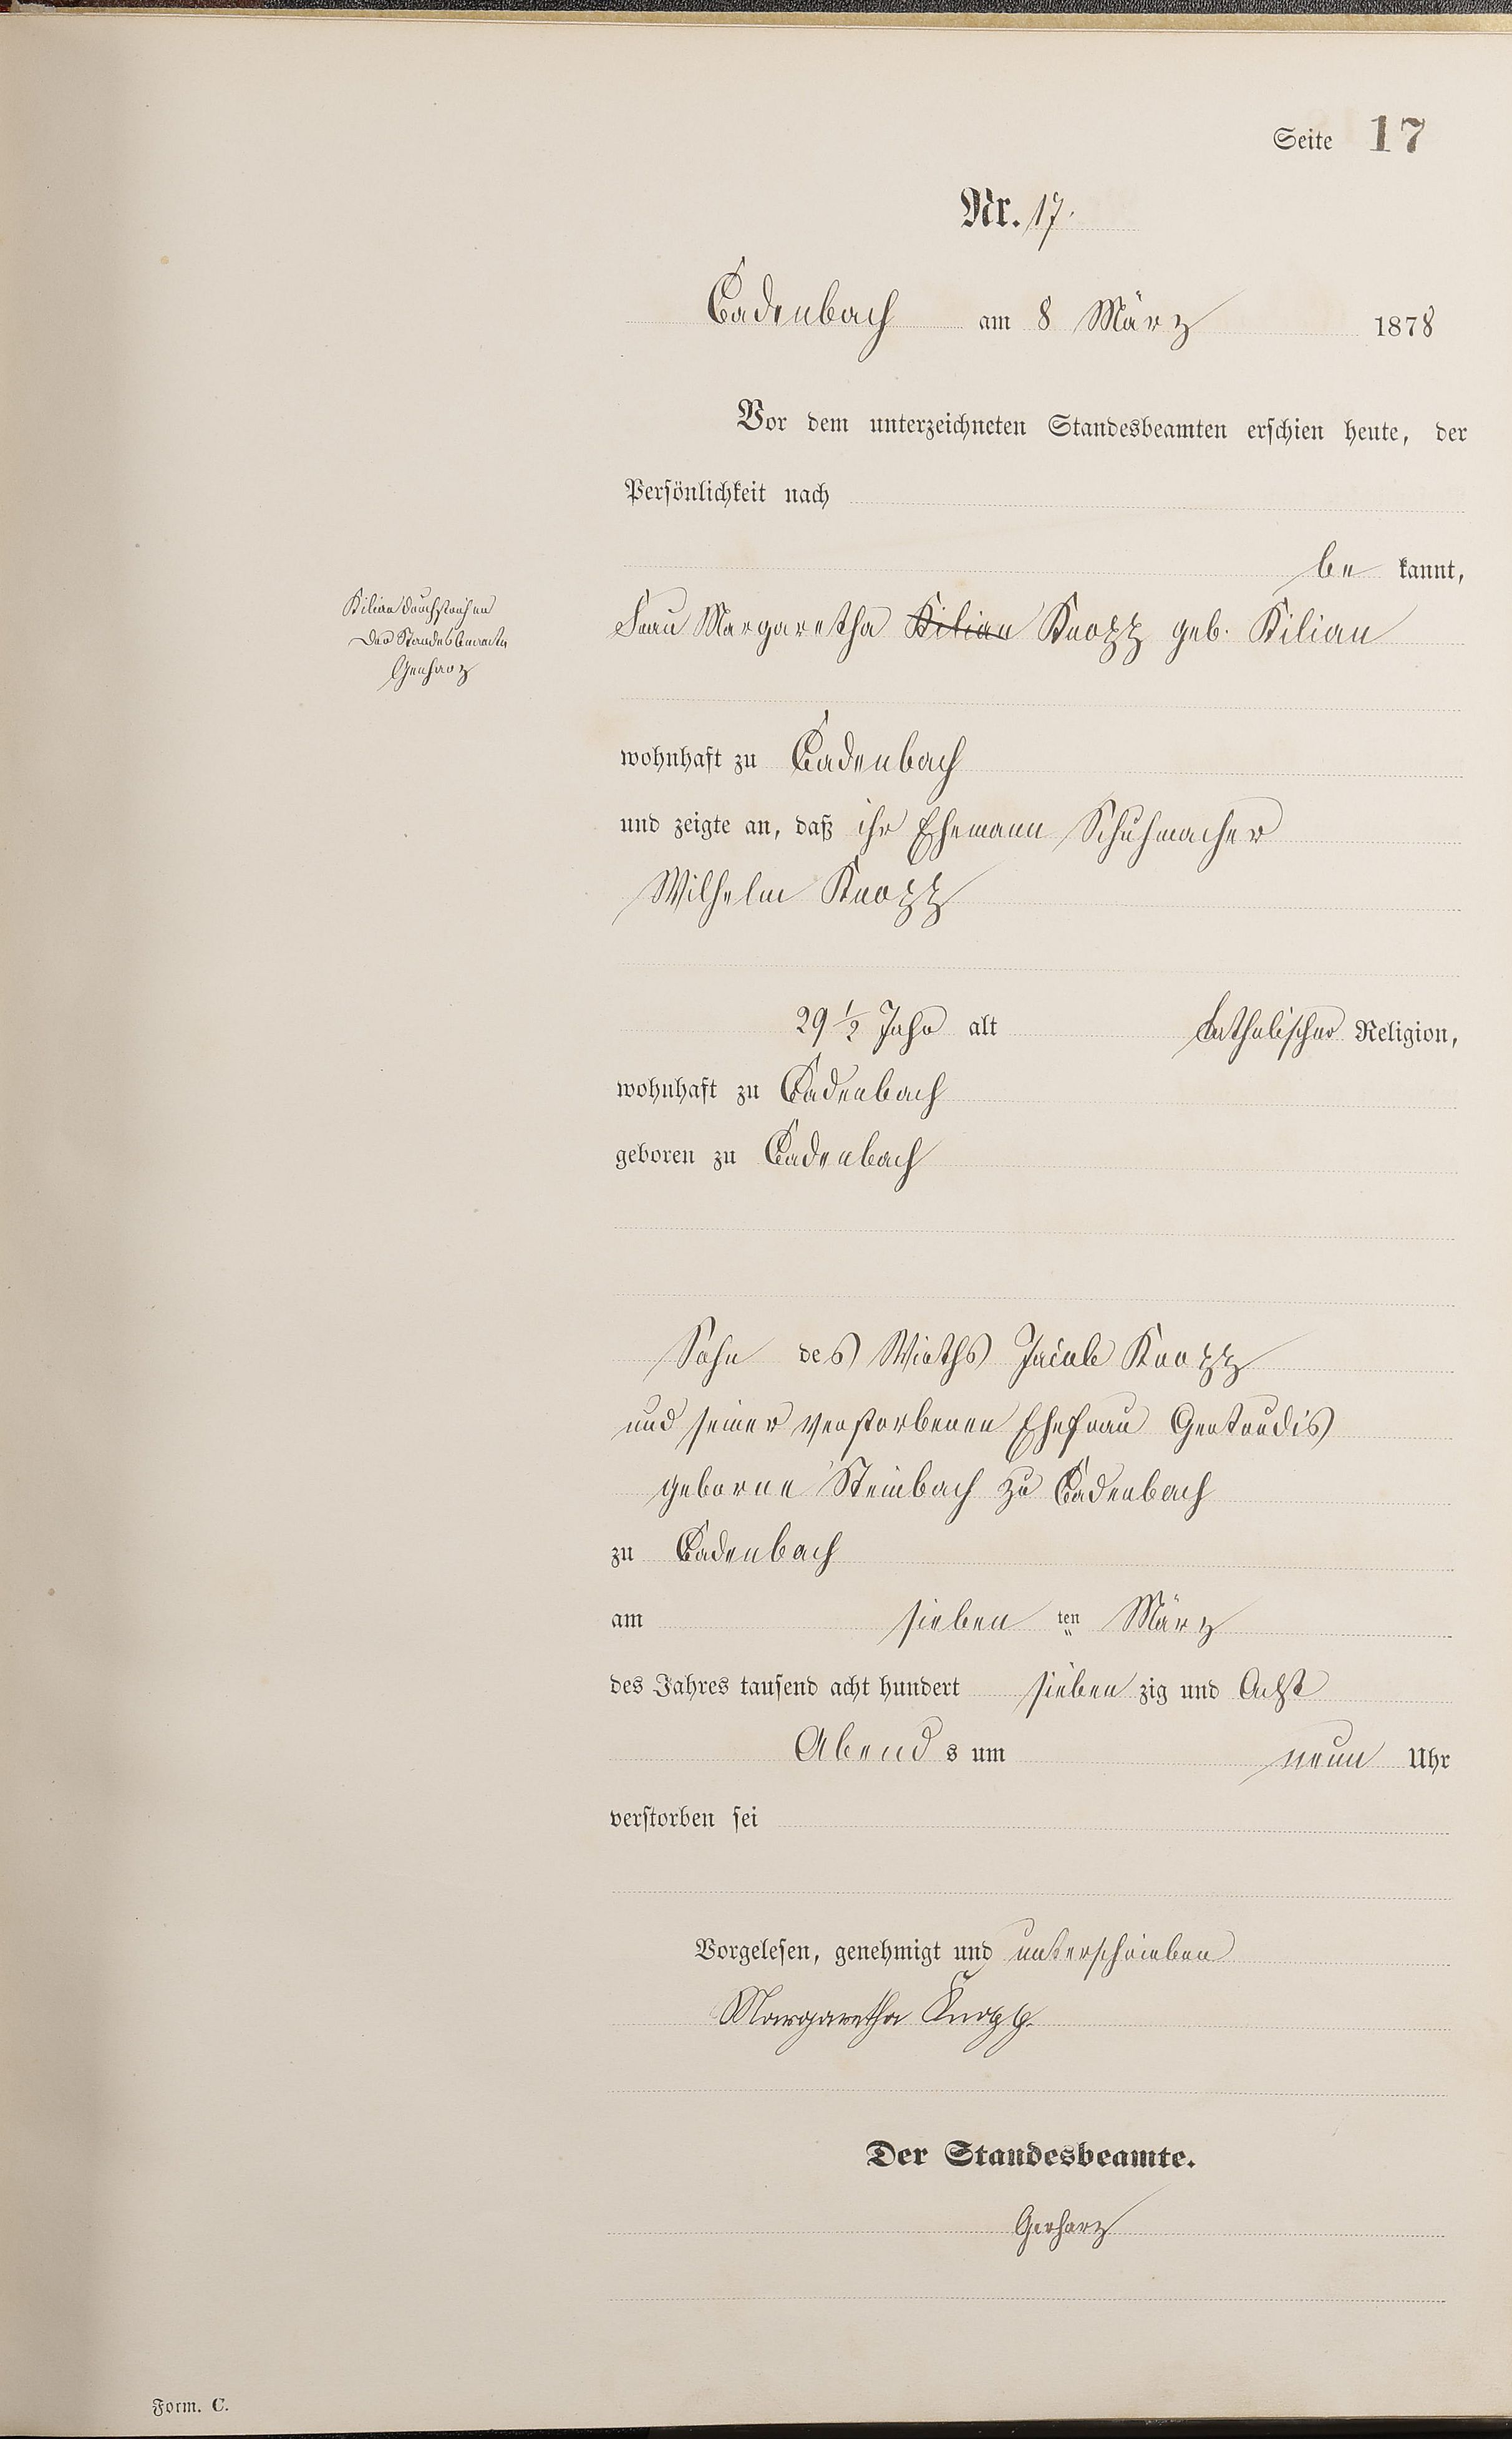 Seite 17
Nr. 17.
Cadenbach am 8 März 1878
Vor dem unterzeichneten Standesbeamten erschien heute, der
Persönlichkeit nach
be kannt,
Kilian durchstrichen
Der Standesbeamte
Gerharz
Frau Margaretha Kilian Knopp geb. Kilian
wohnhaft zu Cadenbach
und zeigte an, daß ihr Ehemann Schuhmacher
Wilhelm Knopp
29 1/2 Jahr alt katholischer Religion,
wohnhaft zu Cadenbach
geboren zu Cadenbach
Sohn des Wirths Jacob Knopp
und seiner verstorbenen Ehefrau Gertrudis
geborne Steinbach zu Cadenbach
zu Cadenbach
am sieben ten März
des Jahres tausend acht hundert sieben zig und Acht
Abend s um neun Uhr
verstorben sei
Vorgelesen, genehmigt und unterschrieben
Margaretha Knopp.
Der Standesbeamte.
Gerharz
Form. C.